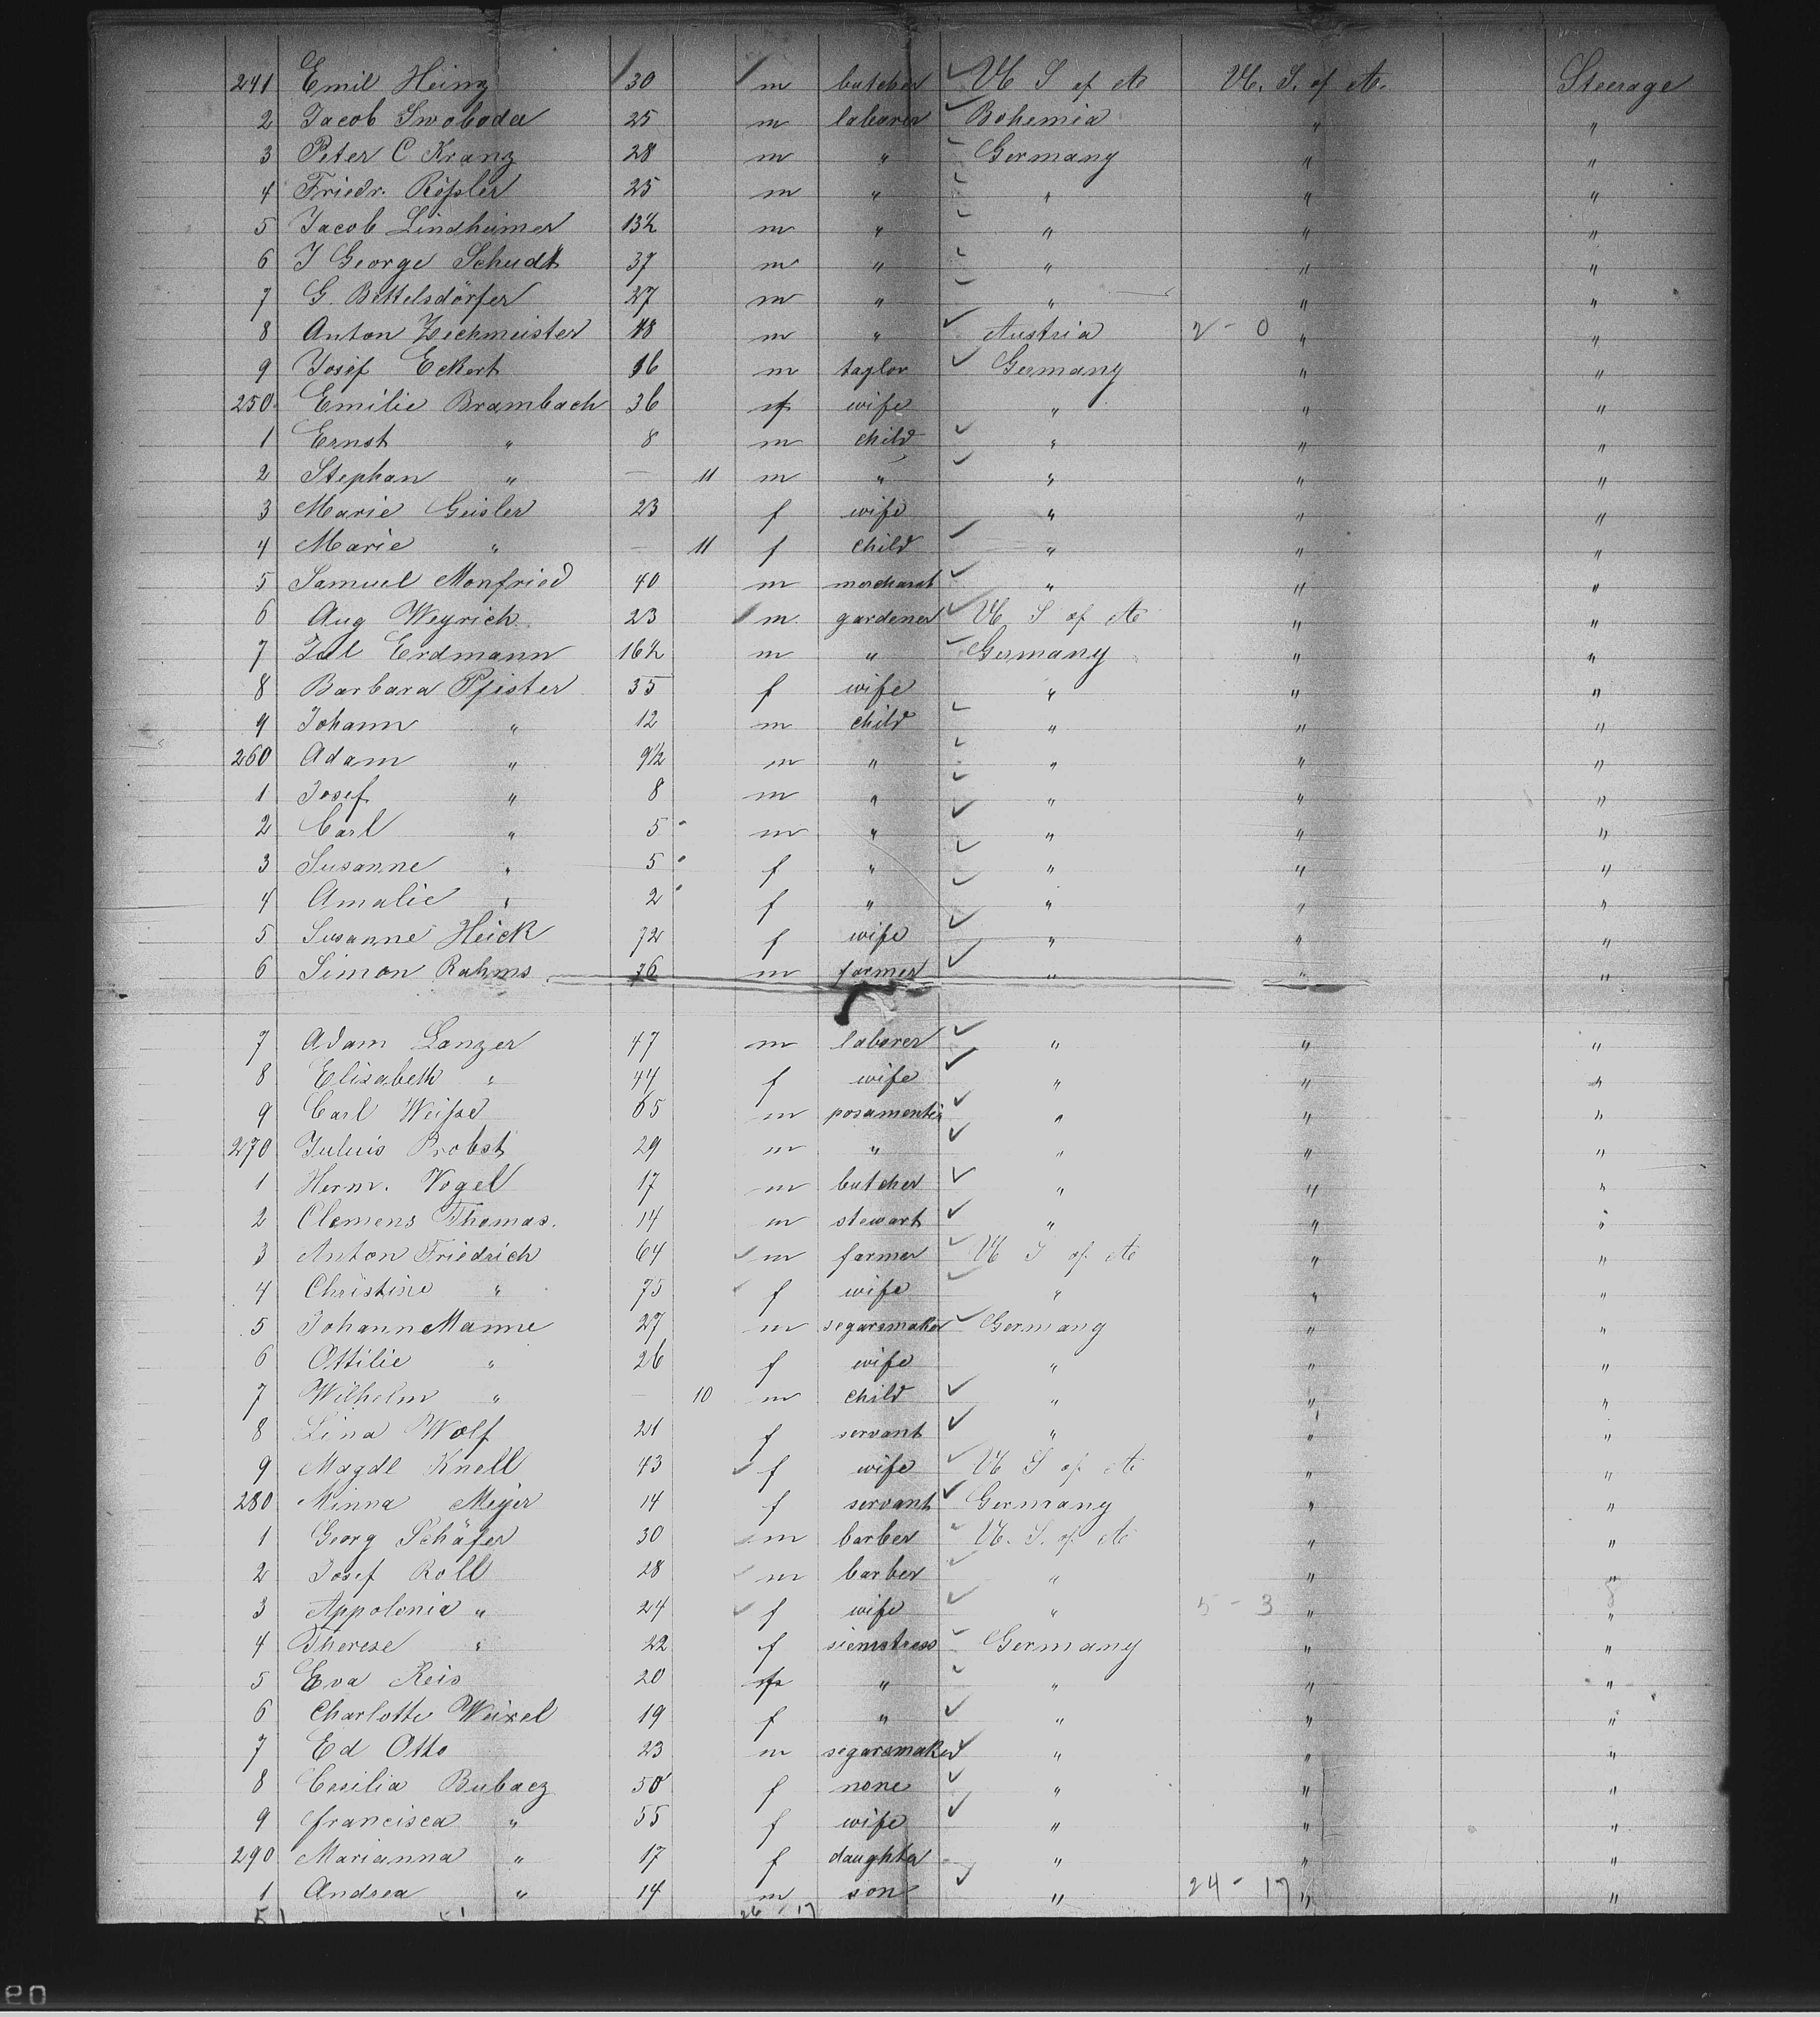 241 Emil Heinz 30 m butcher U S of A U. S. of A. Steerage
2 Jacob Swoboda 25 m laborer Bohemia " "
3 Peter C Kranz 28 m " Germany " "
4 Friedr. Rößler 25 m " " " "
5 Jacob Lindheimer 13½ m " " " "
6 J George Schudt 37 m " " " "
7 G. Bettelsdörfer 27 m " " " "
8 Anton Zechmeister 48 m " Austria 2 - 0 " "
9 Josef Eckert 16 m taylor Germany " "
250 Emilie Brambach 36 f wife " " "
1 Ernst " 8 m child " " "
2 Stephan " — 11 m " " " "
3 Marie Geisler 23 f wife " " "
4 Marie " — 11 f child " " "
5 Samuel Monfried 40 m merchant " " "
6 Aug Weyrich 23 m gardener U S of A " "
7 Jul Erdmann 16½ m " Germany " "
8 Barbara Pfister 35 f wife " " "
9 Johann " 12 m child " " "
260 Adam " 9½ m " " " "
1 Josef " 8 m " " " "
2 Carl " 5 m " " " "
3 Susanne " 5 f " " " "
4 Amalie " 2 f " " " "
5 Susanne Heick 72 f wife " " "
6 Simon Rahms 36 m farmer " " "
7 Adam Lanzer 47 m laborer " " "
8 Elisabeth " 44 f wife " " "
9 Carl Weiße 65 m posamentir " " "
270 Julius Probst 29 m " " " "
1 Herm. Vogel 17 m butcher " " "
2 Clemens Thomas. 14 m stewart " " "
3 Anton Friedrich 64 m farmer U S of A " "
4 Christine " 75 f wife " " "
5 Johann Manne 27 m segarsmaker Germany " "
6 Ottilie " 26 f wife " " "
7 Wilhelm " — 10 m child " " "
8 Lina Wolf 21 f servant " " "
9 Magdl Knell 43 f wife U S of A " "
280 Minna Meyer 14 f servant Germany " "
1 Georg Schäfer 30 m barber U. S. of A " "
2 Josef Roll 28 m barber " " "
3 Appolonia " 24 f wife " 5 - 3 " "
4 Therese " 22 f siemstress Germany " "
5 Eva Reis 20 f " " " "
6 Charlotte Weixel 19 f " " " "
7 Ed Otto 23 m segarsmaker " " "
8 Cesilia Bubacz 50 f none " " "
9 francisca " 55 f wife " " "
290 Marianna " 17 f daughter " " "
1 Andrea " 14 m son " 24 - 17 " "
26 17